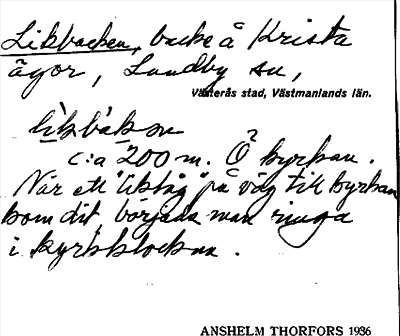 Likbacken, backe å Krista
ägor, Lundby sn,
Västerås stad, Västmanlands län.
lìkbàkən
c:a 200 m. Ö kyrkan.
När ett "liktåg" på väg till kyrkan
kom dit, började man ringa
i kyrkklockan.
ANSHELM THORFORS 1936